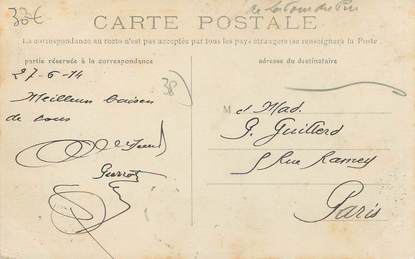 33€
de La Tour du Pin
CARTE POSTALE
La correspondance au recto n'est pas acceptée par tous les pays étrangers (se renseigner à la Poste.
partie réservée à la correspondance
adresse du destinataire
27-6-14
38
Meilleurs baisers
de tous
M et Mad.
P. Guillerd
5 Rue Ramey
Paris